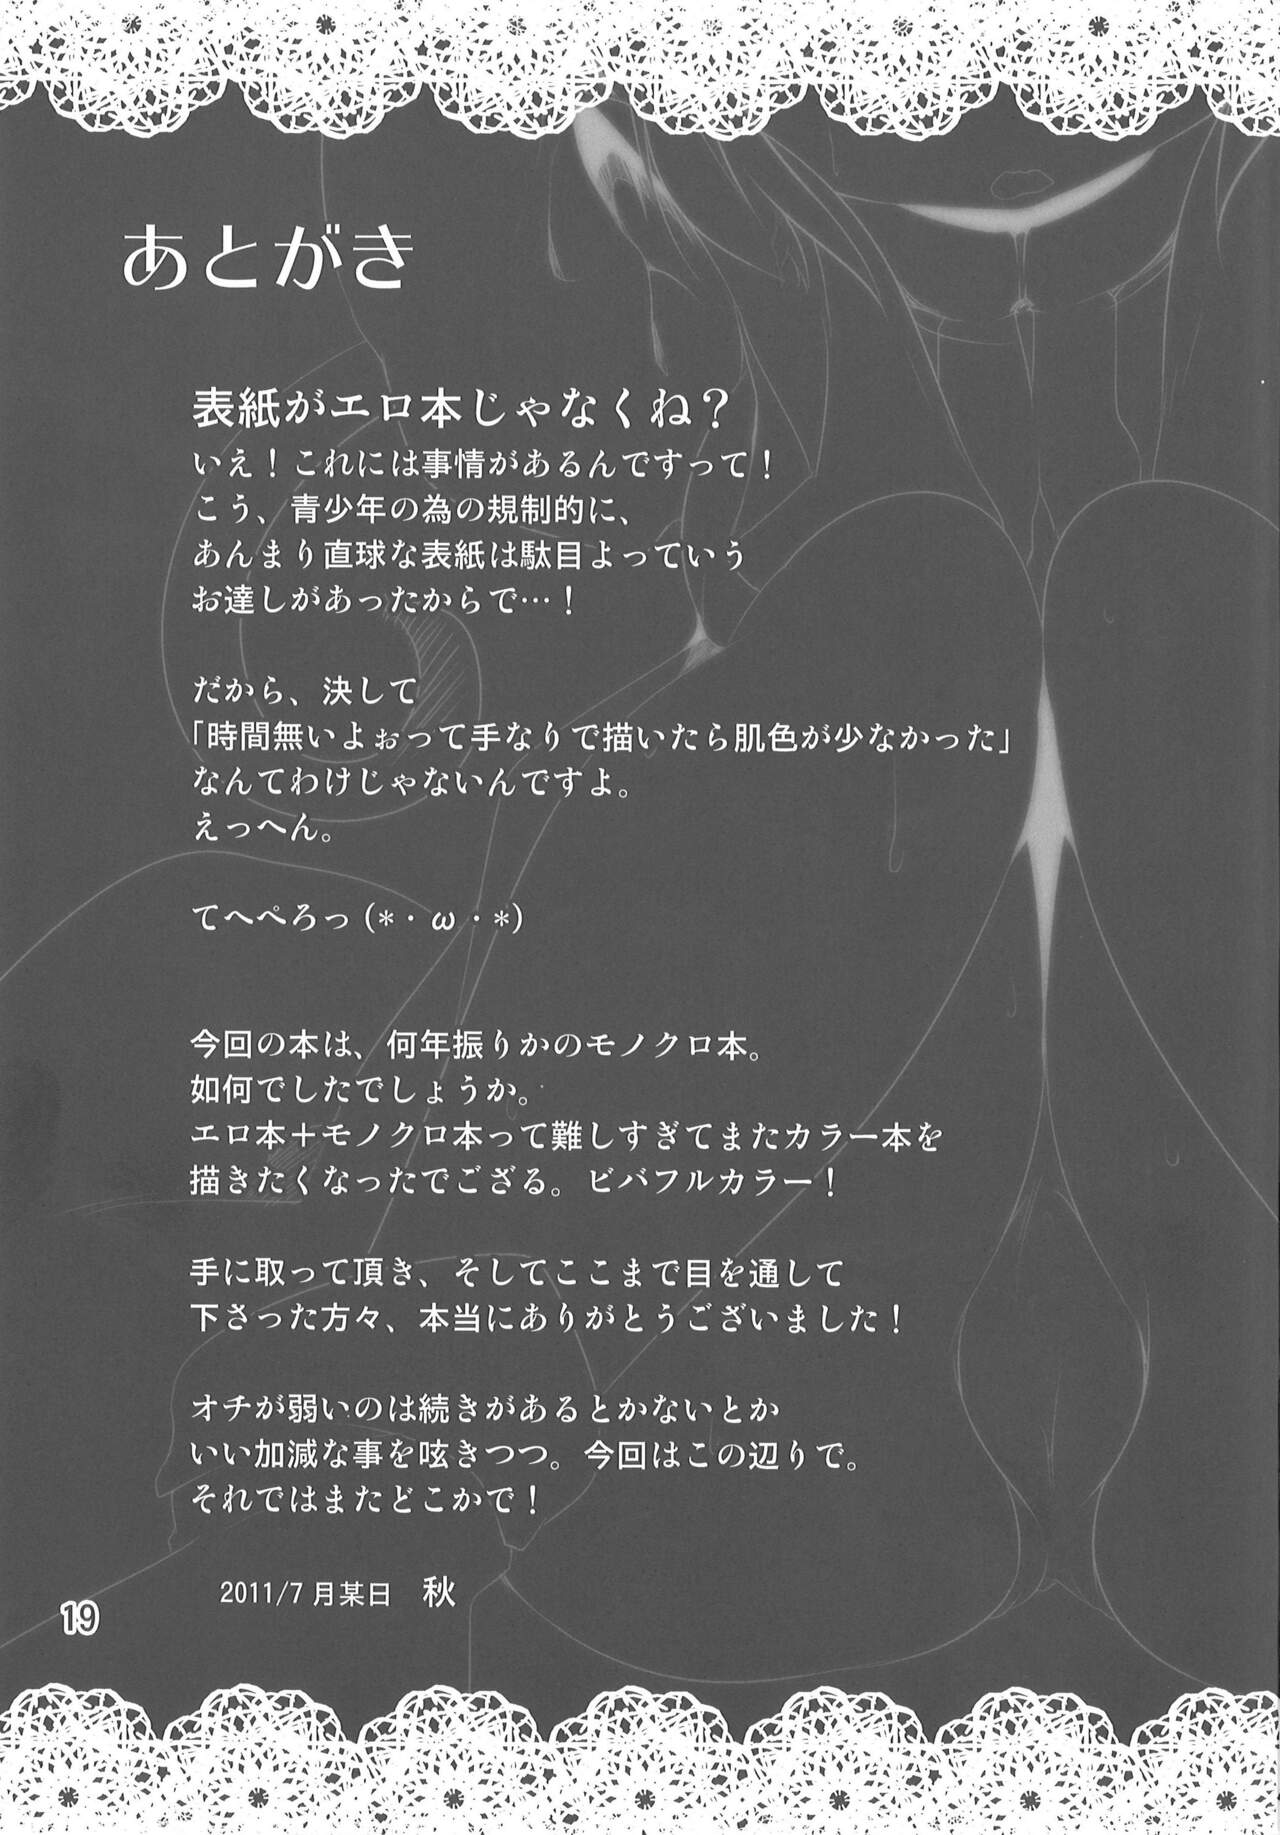 あとがき
表紙がエロ本じゃなくね?
いえ!これには事情があるんですって!
こう、青少年の為の規制的に、
あんまり直球な表紙は駄目よっていう
お達しがあったからで…!
だから、決して
「時間無いよぉって手なりで描いたら肌色が少なかった」
なんてわけじゃないんですよ。
えっへん。
てへぺろっ(*・ω・*)
今回の本は、何年振りかのモノクロ本。
如何でしたでしょうか。
エロ本+モノクロ本って難しすぎてまたカラー本を
描きたくなったでござる。ビバフルカラー!
手に取って頂き、そしてここまで目を通して
下さった方々、本当にありがとうございました!
オチが弱いのは続きがあるとかないとか
いい加減な事を呟きつつ。今回はこの辺りで。
それではまたどこかで!
2011/7月某日 秋
19